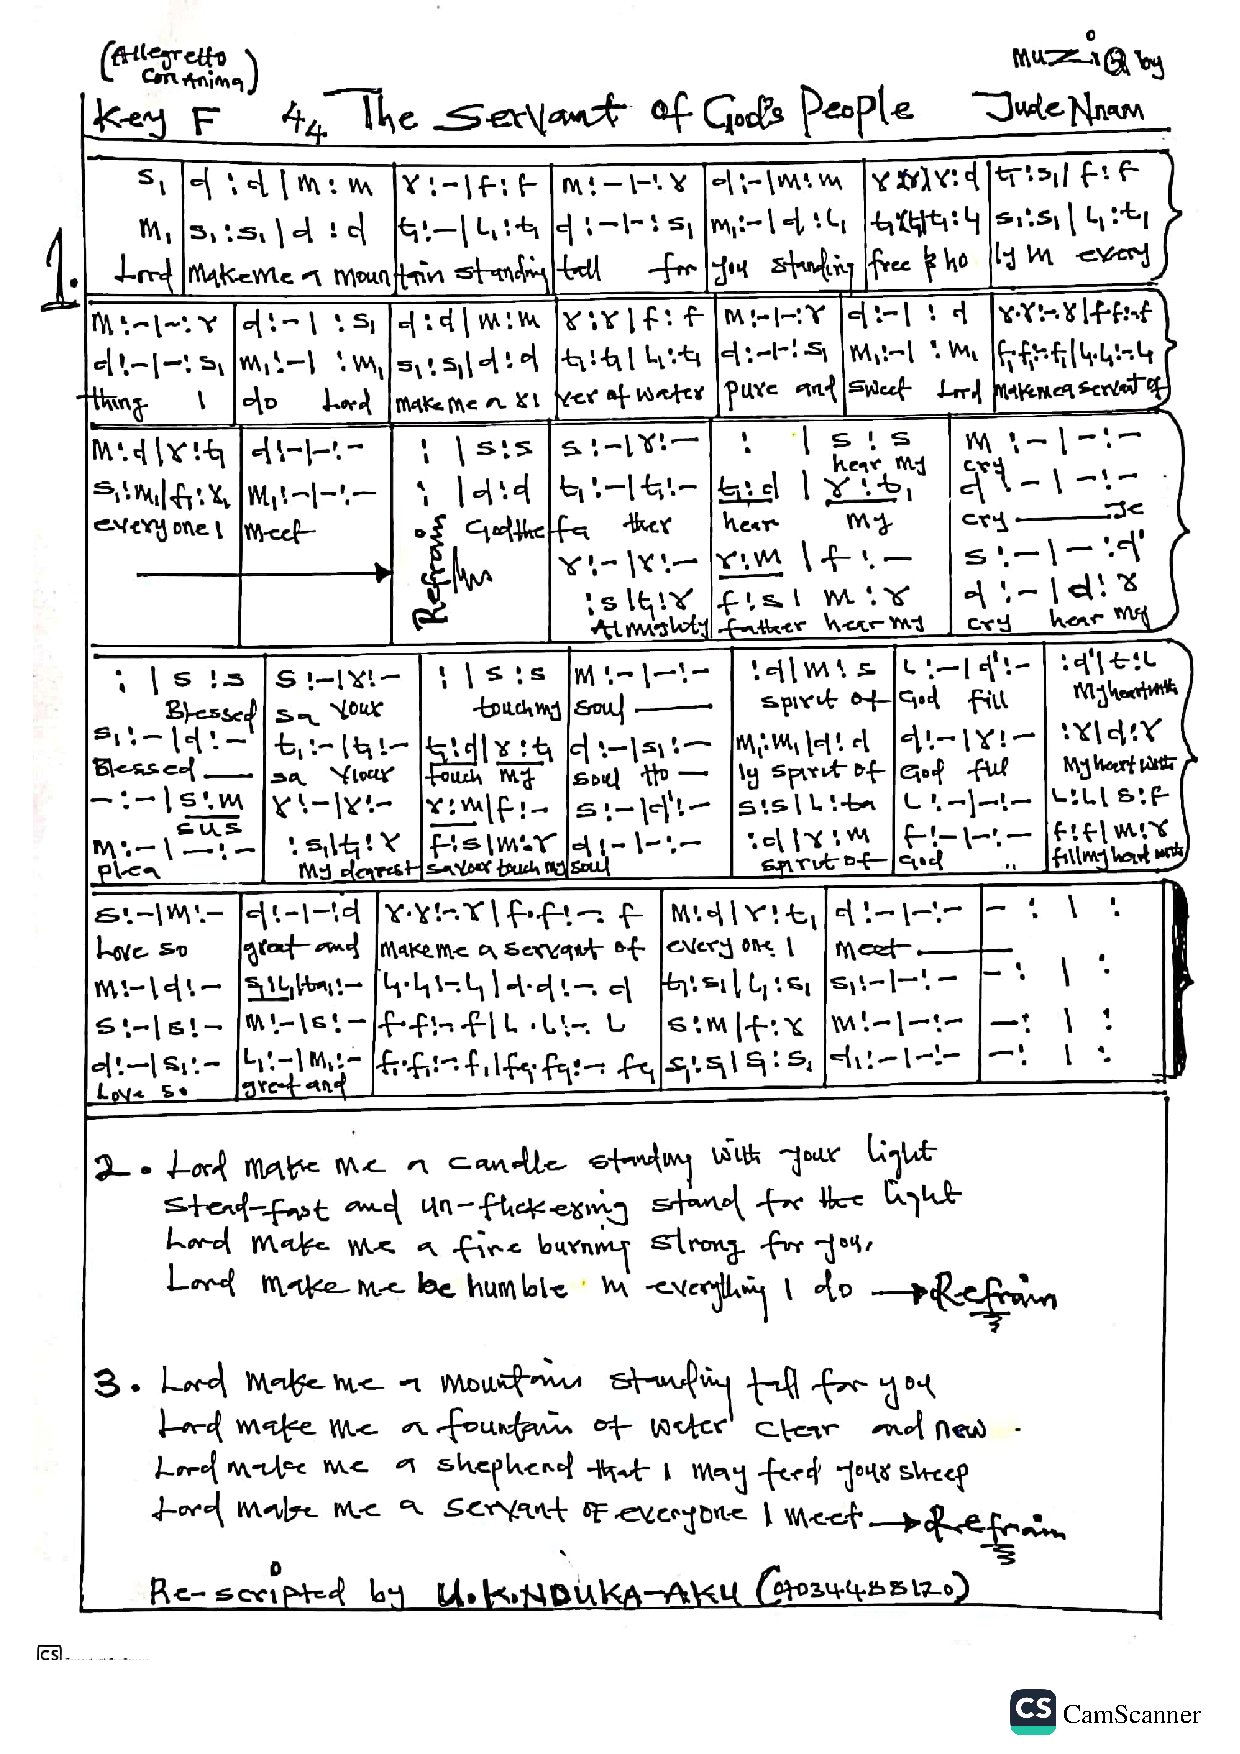 (Allegretto
Con Anima)
muziQ by
Key F 4/4 The Servant of God's People Jude Nnam
s₁ | d : d | m : m | r : - | f : f | m : - | - : r | d : - | m : m
m₁ | s₁ : s₁ | d : d | t₁ : - | l₁ : t₁ | d : - | - : s₁ | m₁ : - | d : l₁
1. Lord make me a moun tain standing tall for you standing free & ho ly in every
m : - | - : r | d : - | : s₁ | d : d | m : m | r : r | f : f | m : - | - : r | d : - | : d | r . r : - . r | f . f : - . f
d : - | - : s₁ | m₁ : - | : m₁ | s₁ : s₁ | d : d | t₁ : t₁ | l₁ : t₁ | d : - | - : s₁ | m₁ : - | : m₁
thing I do Lord make me a ri ver of water pure and sweet Lord make me a servant of
m : d | r : t₁ | d : - | - : - | : | s : s | s : - | r : - | : | s : s | m : - | - : -
hear my cry
s₁ : m₁ | f₁ : r₁ | m₁ : - | - : - | : | d : d | t₁ : - | t₁ : - | t₁ : d | r : t₁ | d : - | - : -
everyone I meet Refrain God the fa ther hear my cry Je
r : - | r : - | r : m | f : - | s : - | - : d'
: s₁ | t₁ : r | f : s | m : r | d : - | d : r
Almighty father hear my cry hear my
: | s : s | s : - | r : - | : | s : s | m : - | - : - | : d | m : s | l : - | d' : - | : d' | t : l
Blessed sa viour touch my soul spirit of God fill My heart with
s₁ : - | d : - | t₁ : - | t₁ : - | t₁ : d | r : t₁ | d : - | s₁ : - | m₁ : m₁ | d : d | d : - | r : - | : r | d : r
Blessed sa viour touch my soul Ho ly spirit of God fill My heart with
- : - | s : m | r : - | r : - | r : m | f : - | s : - | d' : - | s : s | l : ta | l : - | - : - | l : l | s : f
sus
m : - | - : - | : s₁ | t₁ : r | f : s | m : r | d : - | - : - | : d | r : m | f : - | - : - | f : f | m : r
plea My dearest saviour touch my soul spirit of God fill my heart with
s : - | m : - | d : - | - : d | r . r : - . r | f . f : - . f | m : d | r : t₁ | d : - | - : - | - : | :
Love so great and make me a servant of every one I meet
m : - | d : - | s₁ : l₁ | ta₁ : - | l₁ . l₁ : - . l₁ | d . d : - . d | t₁ : s₁ | l₁ : s₁ | s₁ : - | - : - | - : | :
s : - | s : - | m : - | s : - | f . f : - . f | l . l : - . l | s : m | f : r | m : - | - : - | - : | :
d : - | s₁ : - | l₁ : - | m₁ : - | s₁ : s₁ | s₁ : s₁ | d₁ : - | - : - | - : | :
Love so great and
2. Lord make me a candle standing with your light
Stead-fast and un-flickering stand for the light
Lord make me a fire burning strong for you,
Lord make me be humble in everything I do → Refrain
3. Lord make me a mountain standing tall for you
Lord make me a fountain of water clear and new
Lord make me a shepherd that I may feed your sheep
Lord make me a servant of everyone I meet → Refrain
Re-scripted by U.K.NDUKA-AKU
CS
CS CamScanner